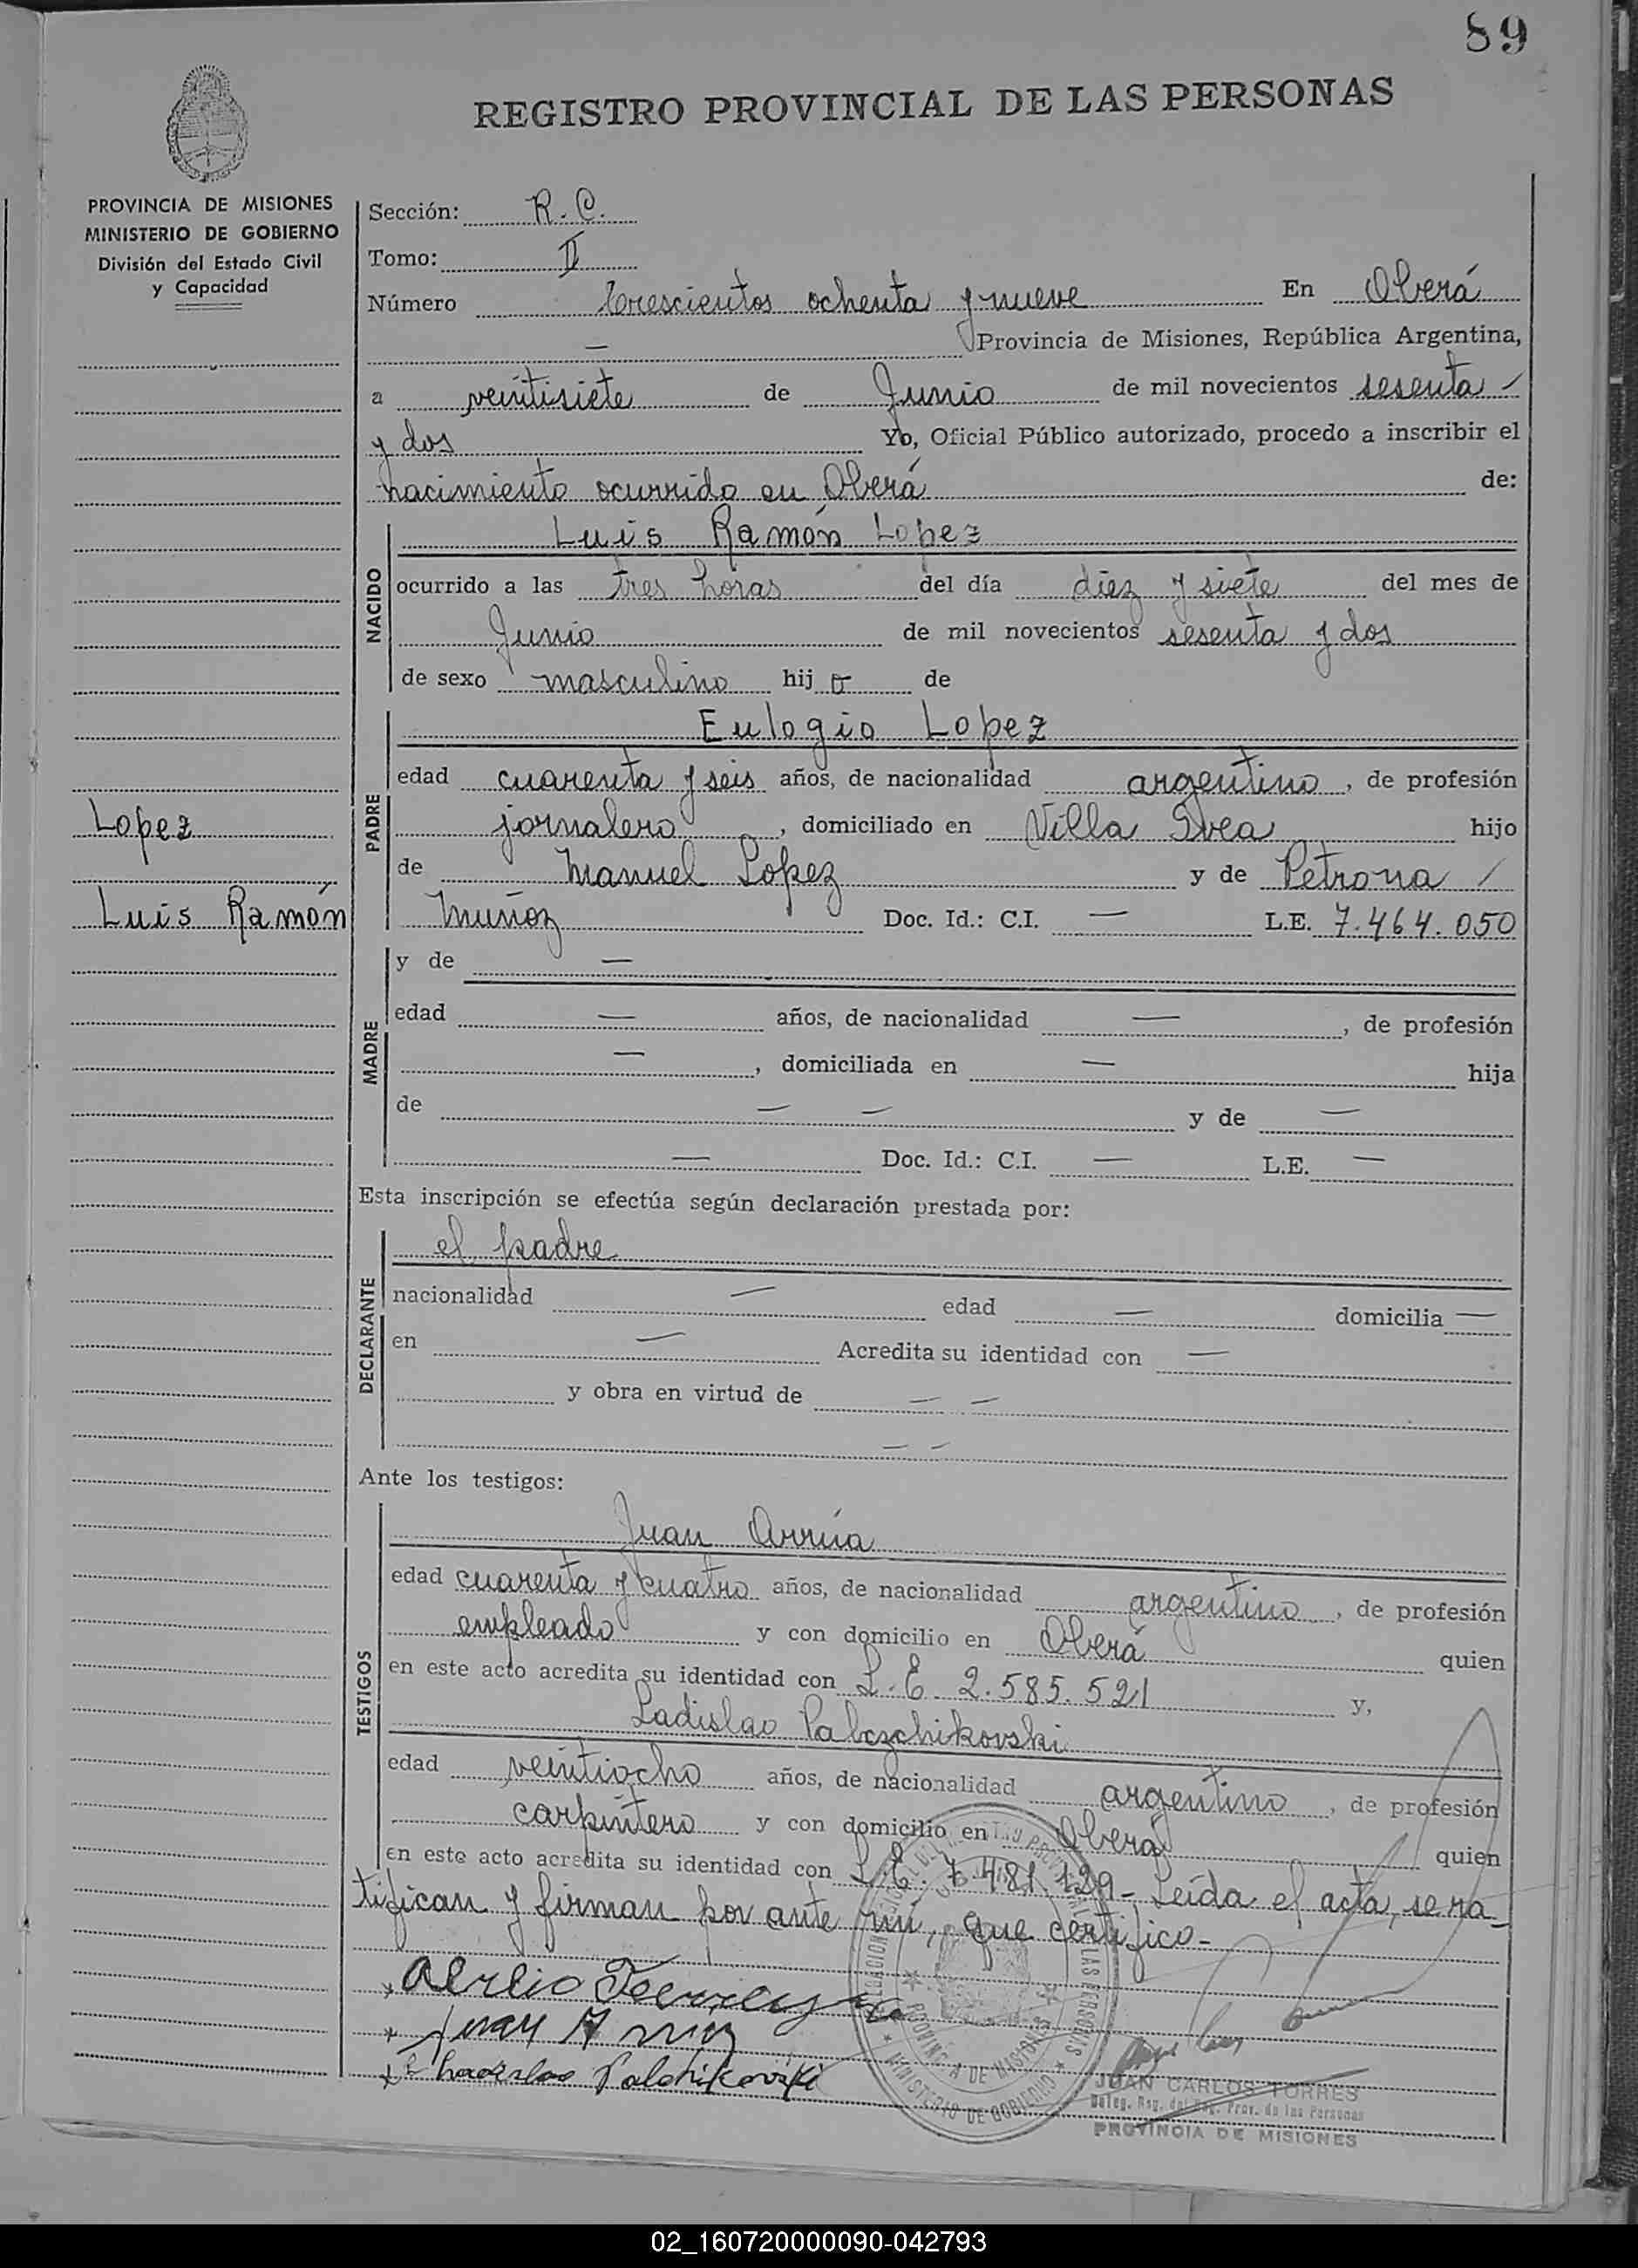 89
REGISTRO PROVINCIAL DE LAS PERSONAS
PROVINCIA DE MISIONES
MINISTERIO DE GOBIERNO
División del Estado Civil
y Capacidad
Sección: R. C.
Tomo: II
Número Trescientos ochenta y nueve En Oberá
— Provincia de Misiones, República Argentina,
a veintisiete de Junio de mil novecientos sesenta —
y dos Yo, Oficial Público autorizado, procedo a inscribir el
nacimiento ocurrido en Oberá de:
NACIDO
Luis Ramón Lopez
ocurrido a las tres horas del día diez y siete del mes de
Junio de mil novecientos sesenta y dos
de sexo masculino hijo de
PADRE
Eulogio Lopez
edad cuarenta y seis años, de nacionalidad argentino, de profesión
jornalero, domiciliado en Villa Svea hijo
de Manuel Lopez y de Petrona /
Muñoz Doc. Id.: C.I. — L.E. 7.464.050
Lopez
Luis Ramón
MADRE
y de —
edad — años, de nacionalidad —, de profesión
—, domiciliada en — hija
de — — y de —
— Doc. Id.: C.I. — L.E. —
Esta inscripción se efectúa según declaración prestada por:
DECLARANTE
el padre
nacionalidad — edad — domicilia —
en — Acredita su identidad con —
y obra en virtud de — —
— —
Ante los testigos:
TESTIGOS
Juan Arrúa
edad cuarenta y cuatro años, de nacionalidad argentino, de profesión
empleado y con domicilio en Oberá quien
en este acto acredita su identidad con L. E. 2.585.521 y,
Ladislao Palczchikovski
edad veintiocho años, de nacionalidad argentino, de profesión
carpintero y con domicilio en Oberá quien
en este acto acredita su identidad con L.E. 7.481.129 - Leída el acta, se ra-
tifican y firman por ante mi, que certifico -
Juan Arrua
JUAN CARLOS TORRES
Prov. de las Personas
PROVINCIA DE MISIONES
PROVINCIA DE MISIONES
MINISTERIO DE GOBIERNO
02_160720000090-042793